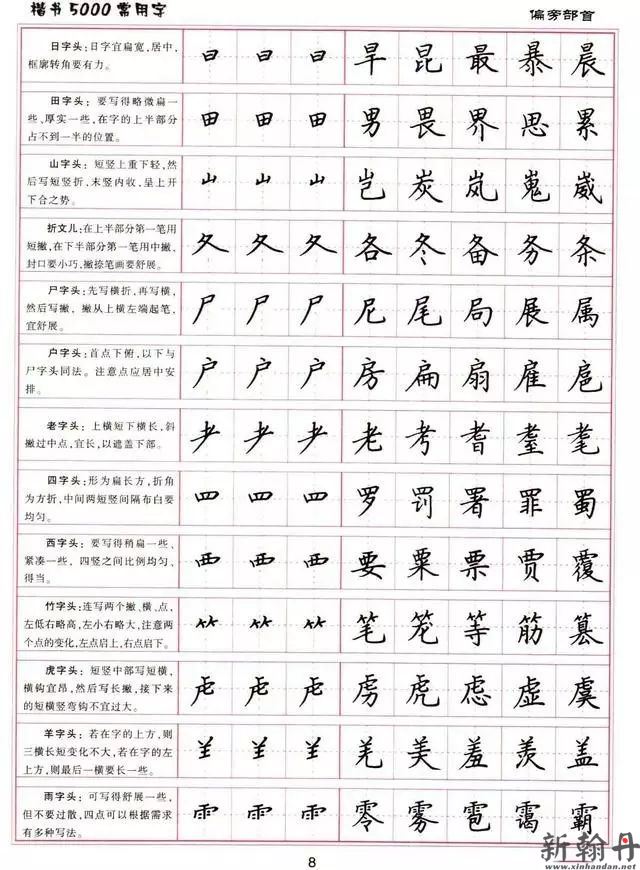 楷书5000常用字
偏旁部首
日字头：日字宜扁宽，居中，
框廓转角要有力。
日 日 日 旱 昆 最 暴 晨
田字头：要写得略微扁一
些，厚实一些，在字的上半部分
占不到一半的位置。
田 田 田 男 畏 界 思 累
山字头：短竖上重下轻，然
后写短竖折，末竖内收，呈上开
下合之势。
山 山 山 岂 炭 岚 嵬 崴
折文儿：在上半部分第一笔用
短撇，在下半部分第一笔用中撇，
封口要小巧，撇捺笔画要舒展。
夂 夂 夂 各 冬 备 务 条
尸字头：先写横折，再写横，
然后写撇，撇从上横左端起笔，
宜舒展。
尸 尸 尸 尼 尾 局 展 属
户字头：首点下俯，以下与
尸字头同法。注意点应居中安
排。
户 户 户 房 扁 扇 雇 扈
老字头：上横短下横长，斜
撇过中点，宜长，以遮盖下部。
耂 耂 耂 老 考 耆 耋 耄
四字头：形为扁长方，折角
为方折，中间两短竖间隔布白要
均匀。
罒 罒 罒 罗 罚 署 罪 蜀
西字头：要写得稍扁一些、
紧凑一些，四竖之间比例均匀、
得当。
覀 覀 覀 要 粟 票 贾 覆
竹字头：连写两个撇、横、点，
左低右略高，左小右略大，注意两
个点的变化，左点启上，右点启下。
⺮ ⺮ ⺮ 笔 笼 等 筋 篡
虎字头：短竖中部写短横，
横钩宜昂，然后写长撇，接下来
的短横竖弯钩不宜过大。
虍 虍 虍 虏 虎 虑 虚 虞
羊字头：若在字的上方，则
三横长短变化不大，若在字的左
上方，则最后一横要长一些。
𦍌 𦍌 𦍌 羌 美 羞 羡 盖
雨字头：可写得舒展一些，
但不要过散，四点可以根据需求
有多种写法。
⻗ ⻗ ⻗ 零 雾 雹 霭 霸
8
新翰丹
www.xinhandan.net